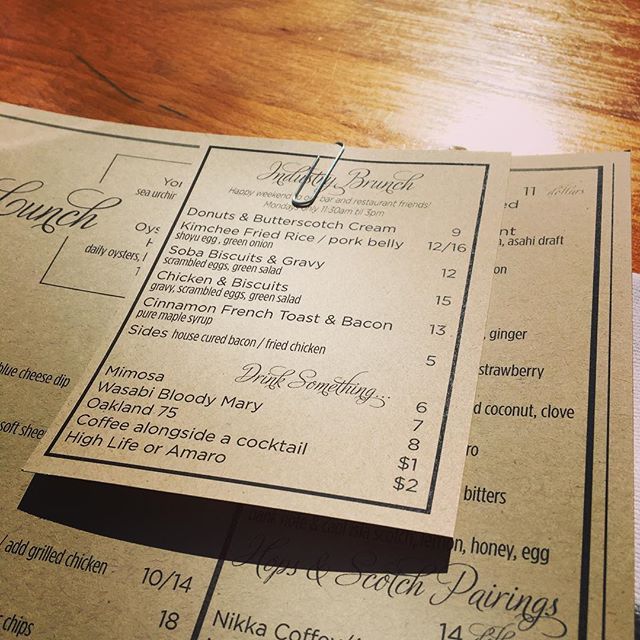 Industry Brunch
Happy weekend to our bar and restaurant friends!
Mondays only 11:30am til 3pm
Donuts & Butterscotch Cream 9
Kimchee Fried Rice / pork belly 12/16
shoyu egg, green onion
Soba Biscuits & Gravy 12
scrambled eggs, green salad
Chicken & Biscuits 15
gravy, scrambled eggs, green salad
Cinnamon French Toast & Bacon 13
pure maple syrup
Sides house cured bacon / fried chicken 5
Drink Something...
Mimosa 6
Wasabi Bloody Mary 7
Oakland 75 8
Coffee alongside a cocktail $1
High Life or Amaro $2
You
sea urchin
Oys
H
daily oysters,
1
blue cheese dip
/ add grilled chicken
10/14
chips 18
11 dollars
, asahi draft
, ginger
strawberry
d coconut, clove
bitters
scotch, lemon, honey, egg
Hops & Scotch Pairings
Nikka Coffey 14